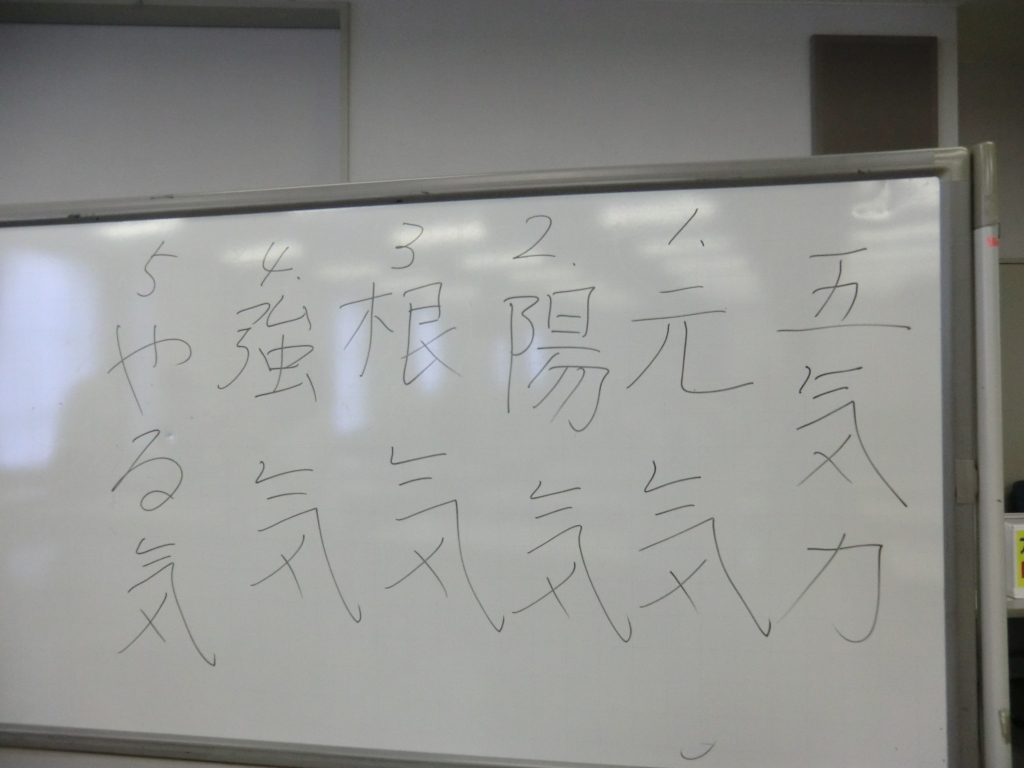 五気力
1. 元気
2. 陽気
3 根気
4. 強気
5 やる気